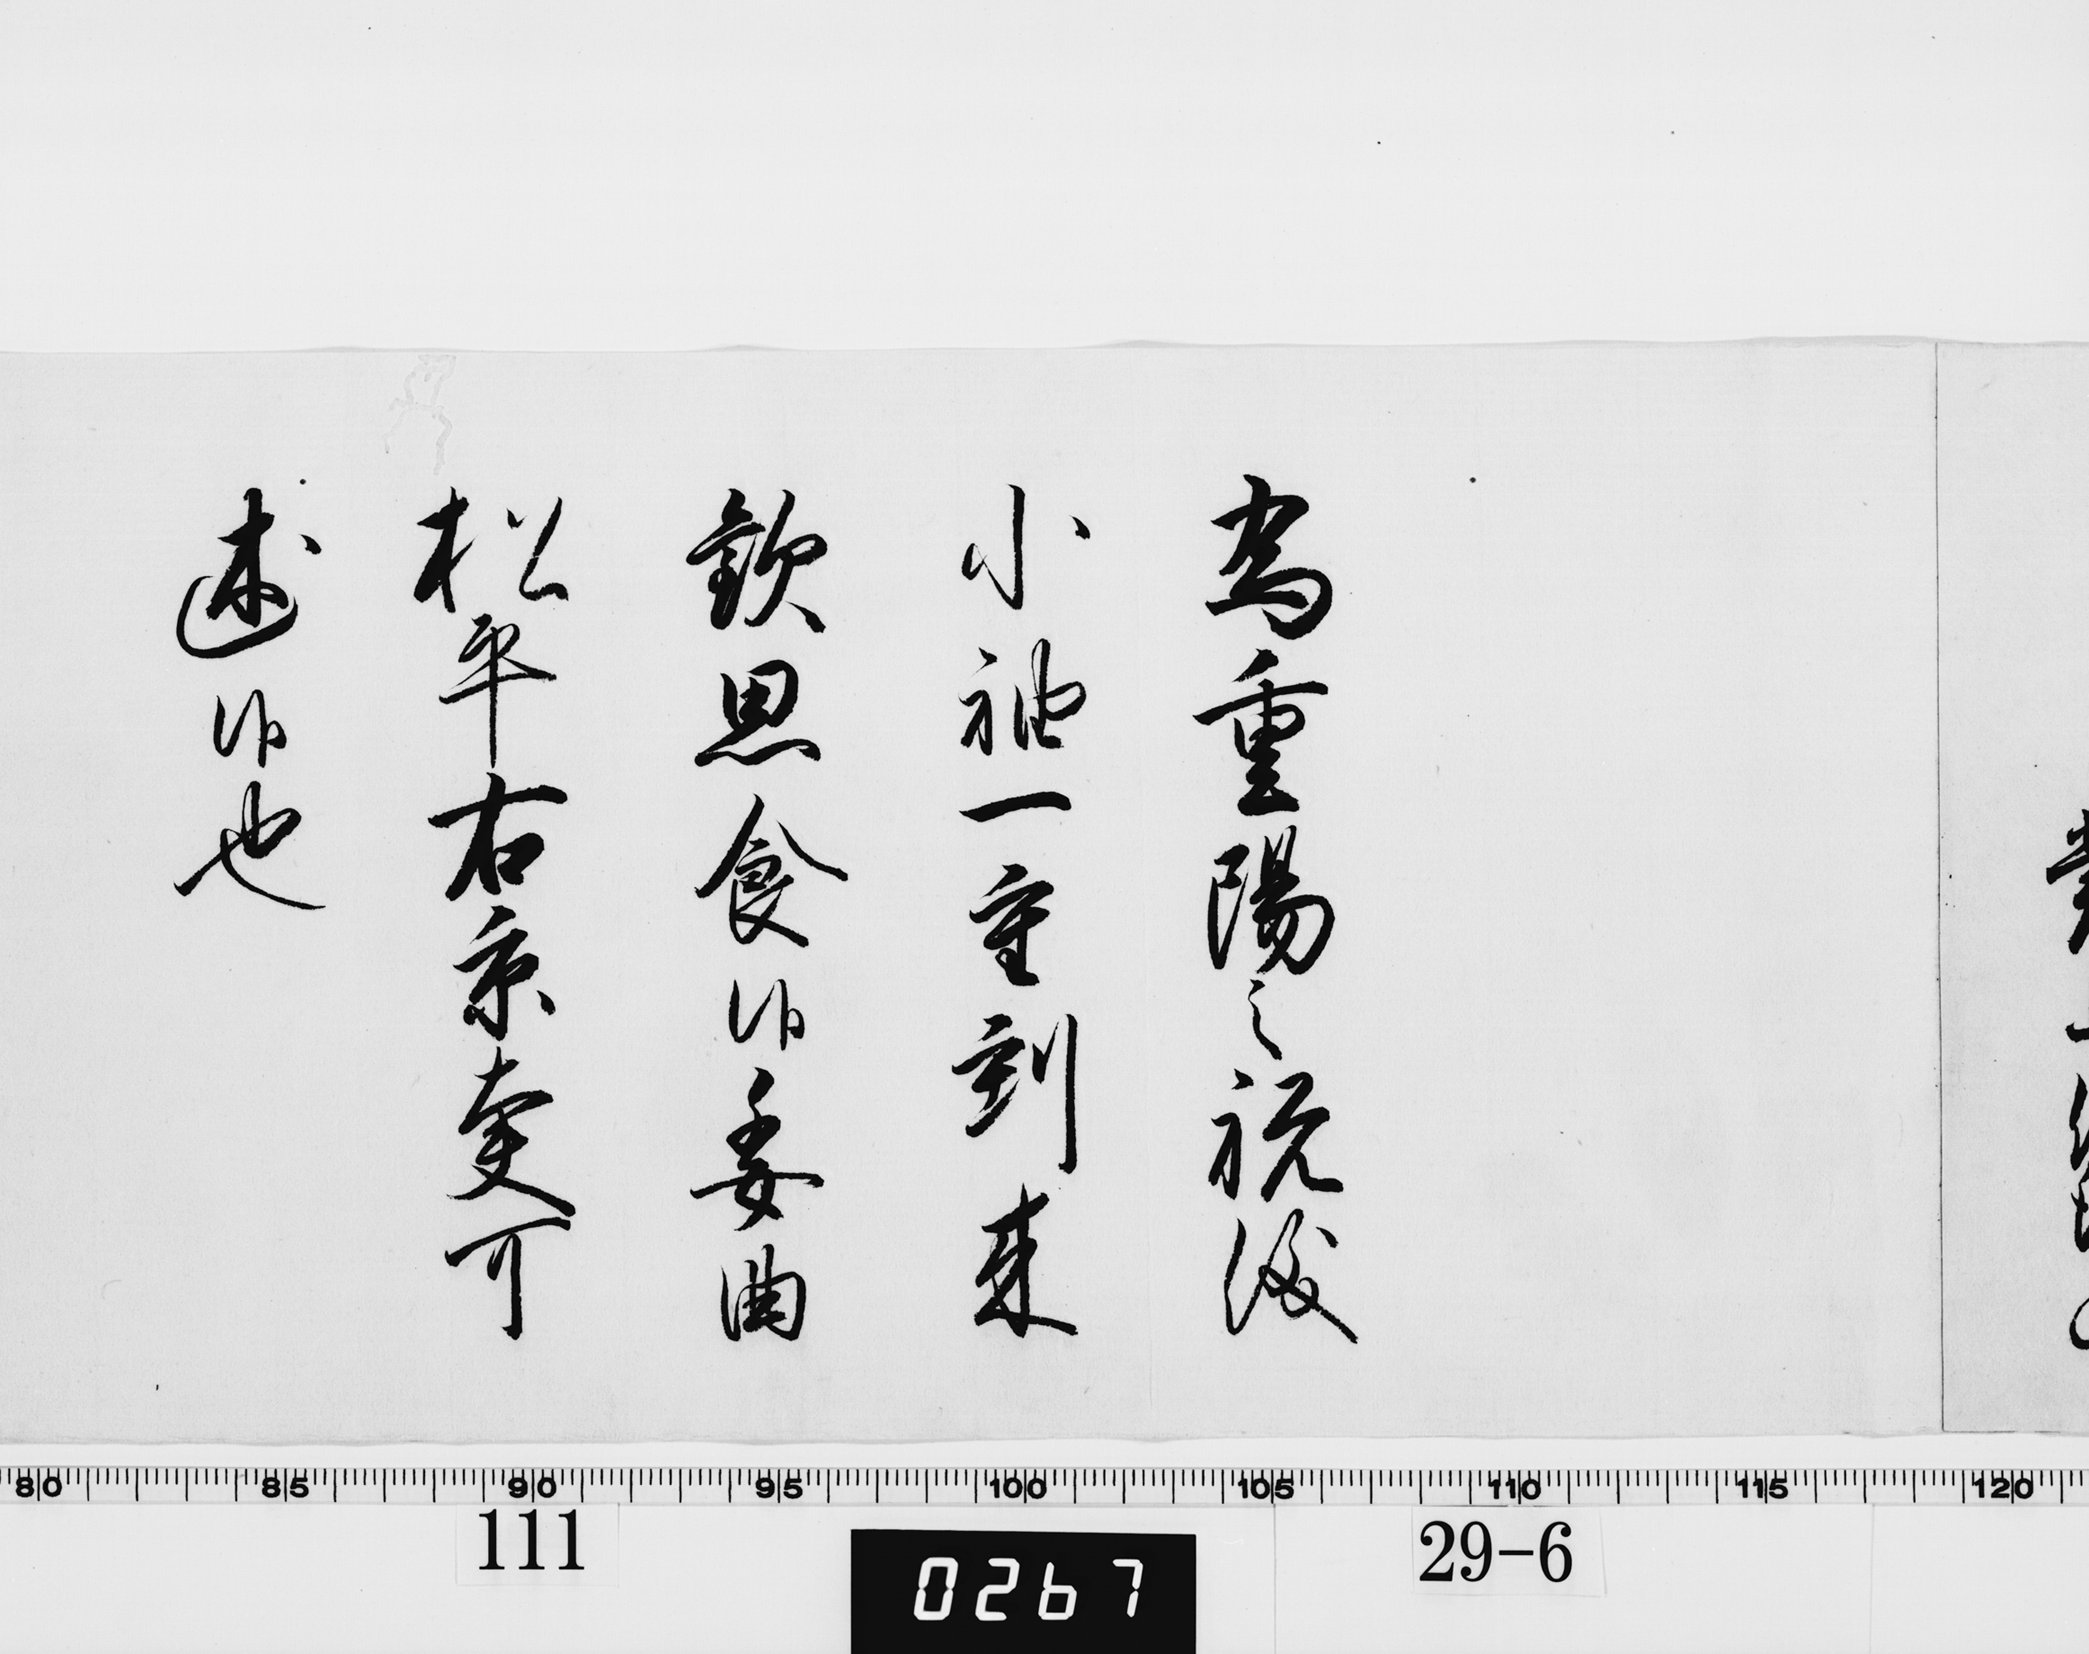 為重陽之祝儀
小袖一重到来
歓思食候委曲
松平右京大夫可
述候也
80 85 90 95 100 105 110 115 120
111
0267
29-6